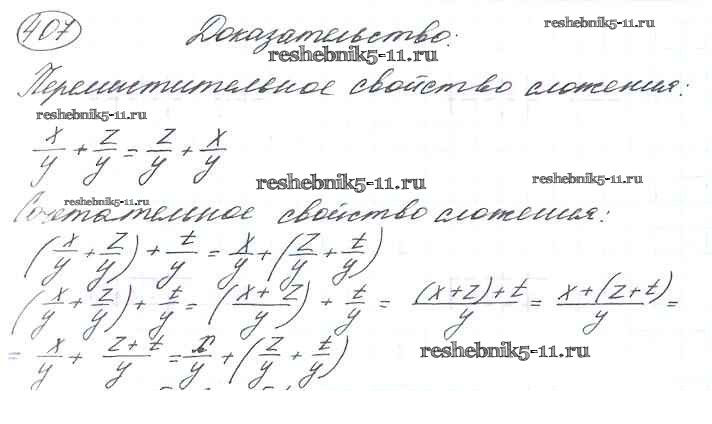 407 Доказательство:
reshebnik5-11.ru
reshebnik5-11.ru
Переместительное свойство сложения:
reshebnik5-11.ru
x/y + z/y = z/y + x/y
reshebnik5-11.ru
reshebnik5-11.ru
reshebnik5-11.ru
Сочетательное свойство сложения:
(x/y + z/y) + t/y = x/y + (z/y + t/y)
(x/y + z/y) + t/y = (x+z/y) + t/y = (x+z)+t/y = x+(z+t)/y =
= x/y + z+t/y = x/y + (z/y + t/y)
reshebnik5-11.ru